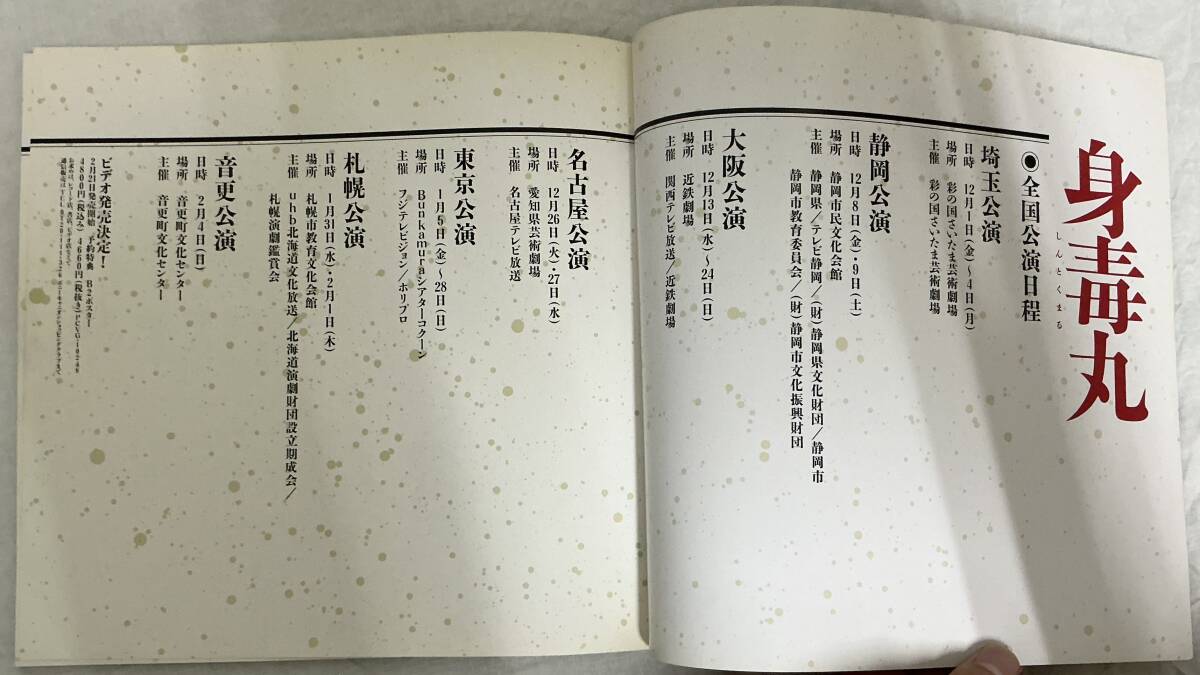 身毒丸
しんとくまる
◉全国公演日程
埼玉公演
日時 12月1日(金)〜4日(月)
場所 彩の国さいたま芸術劇場
主催 彩の国さいたま芸術劇場
静岡公演
日時 12月8日(金)・9日(土)
場所 静岡市民文化会館
主催 静岡県/テレビ静岡/(財)静岡県文化財団/静岡市
静岡市教育委員会/(財)静岡市文化振興財団
大阪公演
日時 12月13日(水)〜24日(日)
場所 近鉄劇場
主催 関西テレビ放送/近鉄劇場
名古屋公演
日時 12月26日(火)・27日(水)
場所 愛知県芸術劇場
主催 名古屋テレビ放送
東京公演
日時 1月5日(金)〜28日(日)
場所 Bunkamuraシアターコクーン
主催 フジテレビジョン/ホリプロ
札幌公演
日時 1月31日(水)・2月1日(木)
場所 札幌市教育文化会館
主催 uhb北海道文化放送/北海道演劇財団設立期成会/
札幌演劇鑑賞会
音更公演
日時 2月4日(日)
場所 音更町文化センター
主催 音更町文化センター
ビデオ発売決定!
2月21日発売開始 予約特典 B2ポスター
4800円(税込み) 4660円(税抜き)PCVG-10246